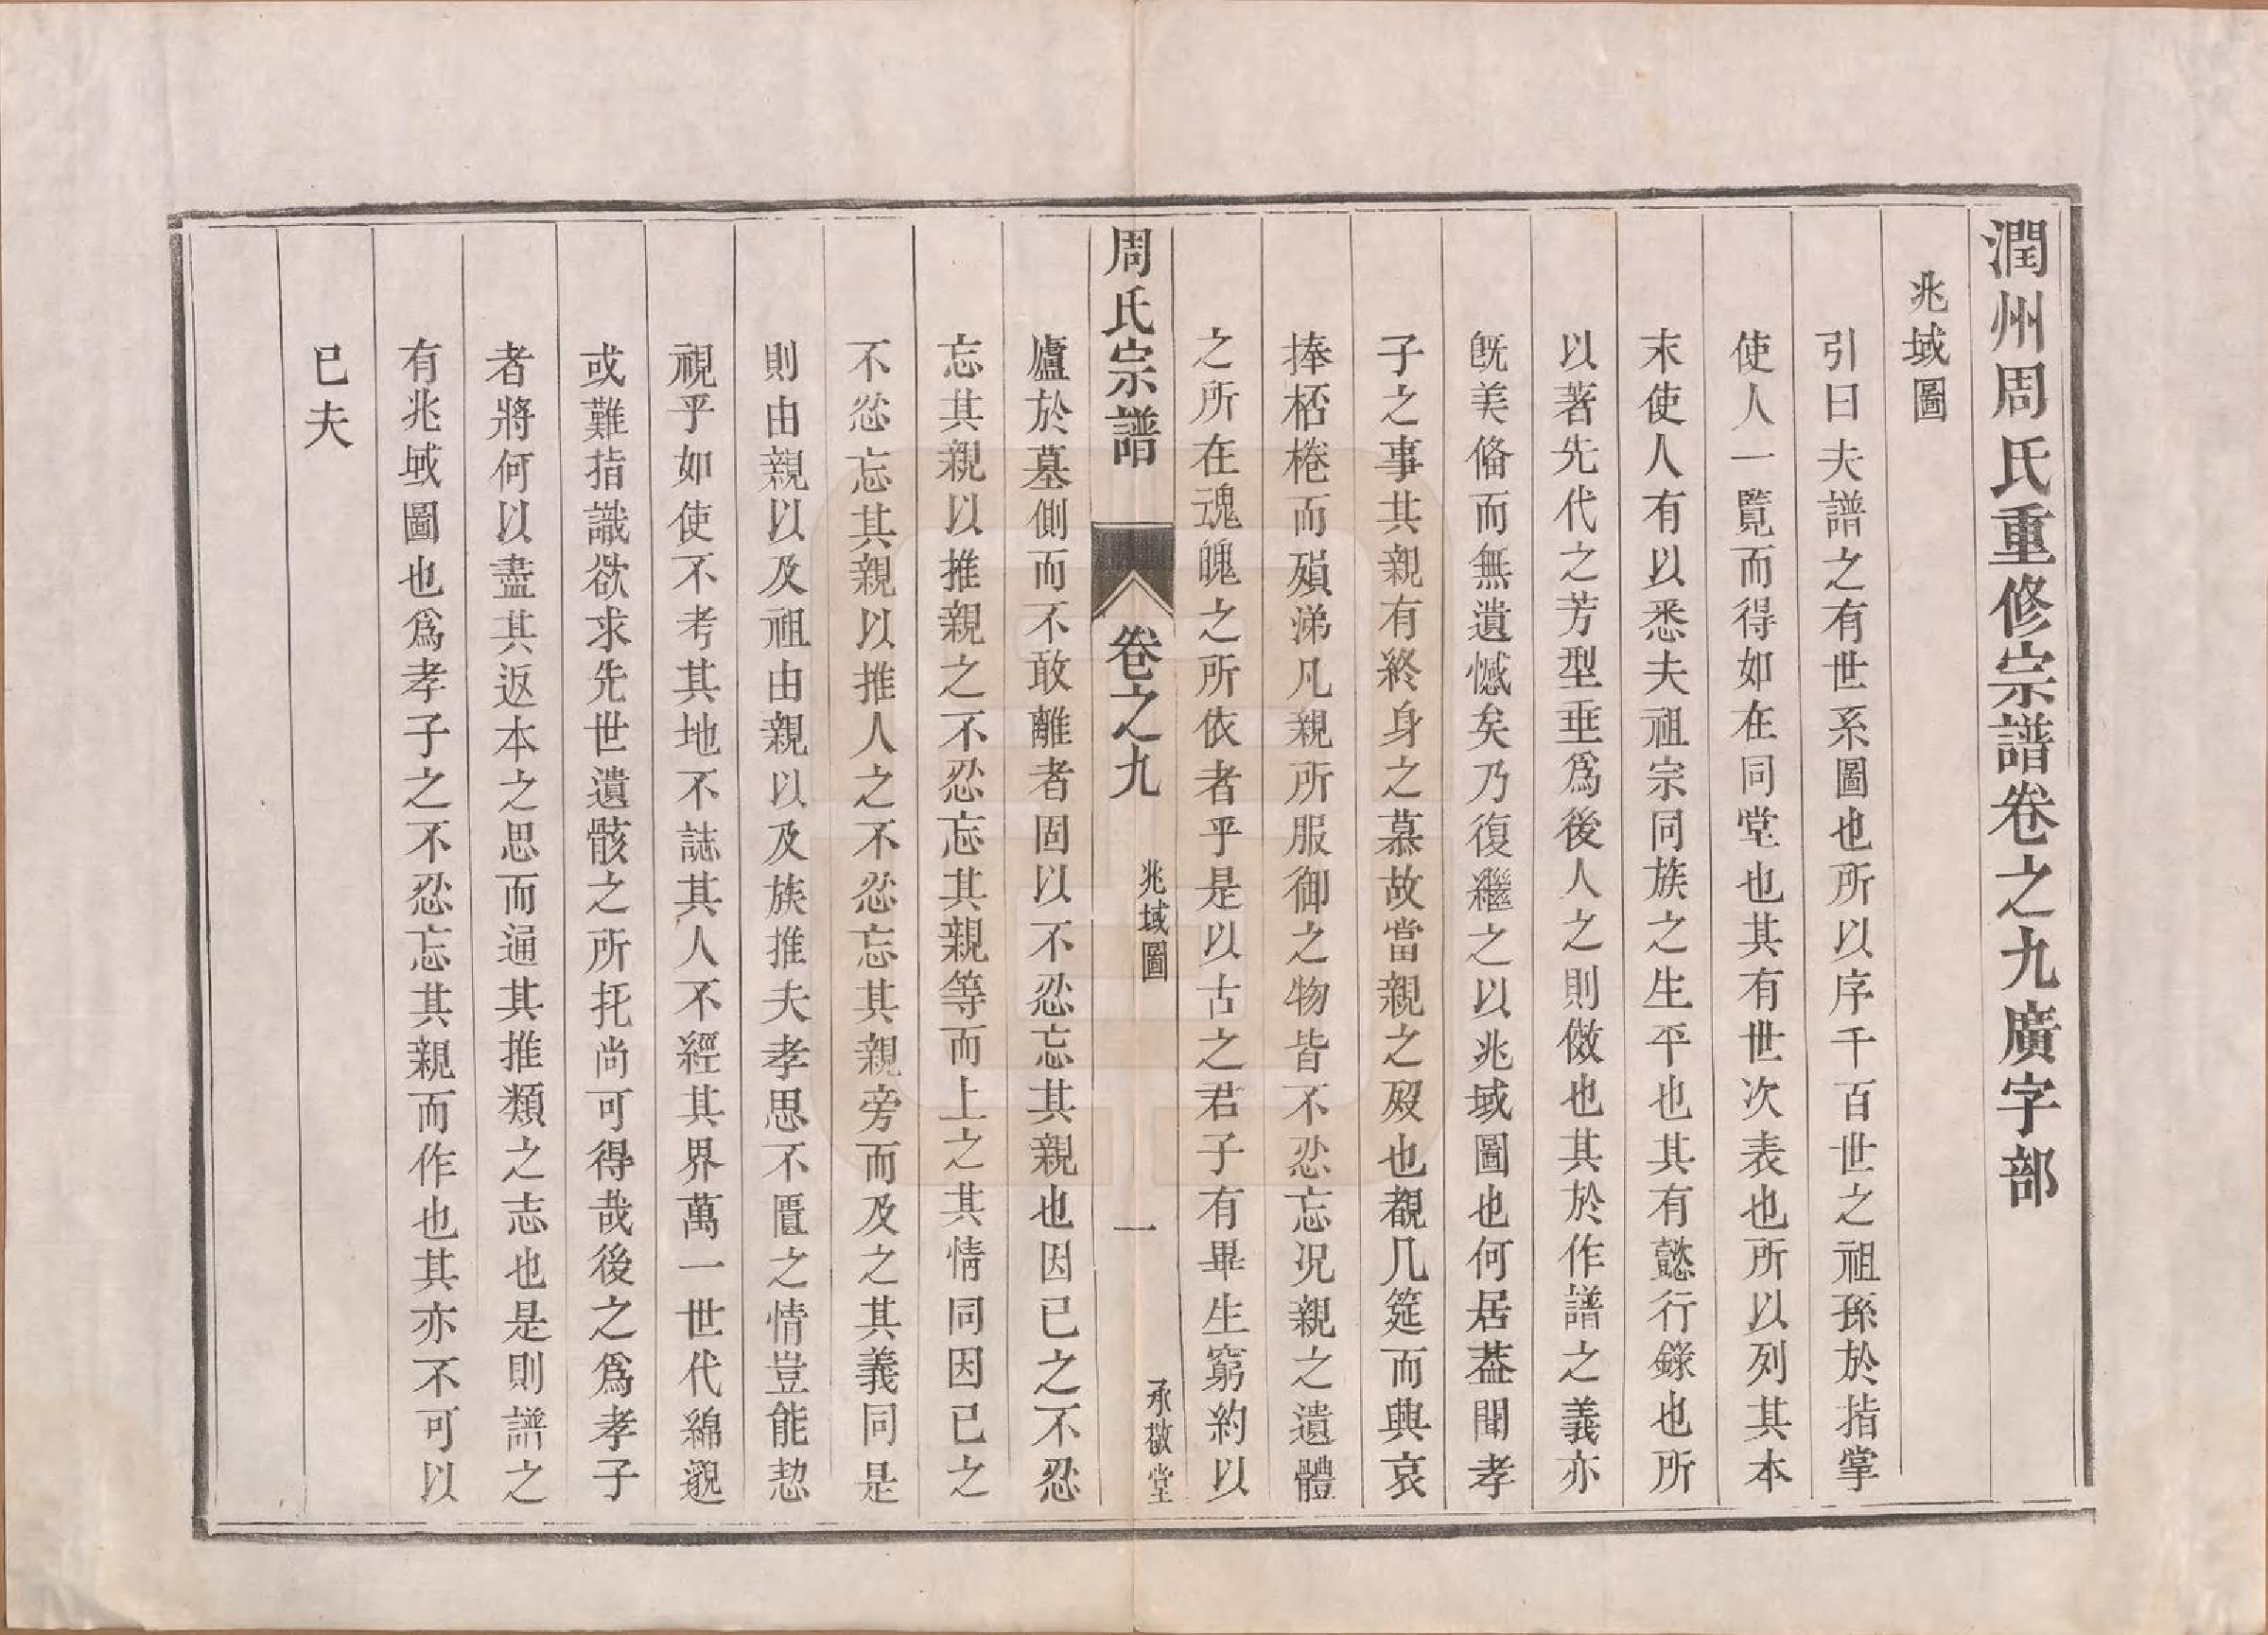 潤州周氏重修宗譜卷之九廣字部
兆域圖
引曰夫譜之有世系圖也所以序千百世之祖孫於指掌
使人一覽而得如在同堂也其有世次表也所以列其本
末使人有以悉夫祖宗同族之生平也其有懿行錄也所
以著先代之芳型垂爲後人之則傚也其於作譜之義亦
旣美偹而無遺憾矣乃復繼之以兆域圖也何居葢聞孝
子之事其親有終身之慕故當親之歿也覩几筵而興哀
捧桮棬而殞涕凡親所服御之物皆不忍忘况親之遺體
之所在魂魄之所依者乎是以古之君子有畢生窮約以
周氏宗譜
卷之九
兆域圖
一
承敬堂
廬於墓側而不敢離者固以不忍忘其親也因已之不忍
忘其親以推親之不忍忘其親等而上之其情同因已之
不忍忘其親以推人之不忍忘其親旁而及之其義同是
則由親以及祖由親以及族推夫孝思不匱之情豈能恝
視乎如使不考其地不誌其人不經其界萬一世代綿邈
或難指識欲求先世遺骸之所托尚可得哉後之爲孝子
者將何以盡其返本之思而通其推類之志也是則譜之
有兆域圖也爲孝子之不忍忘其親而作也其亦不可以
已夫